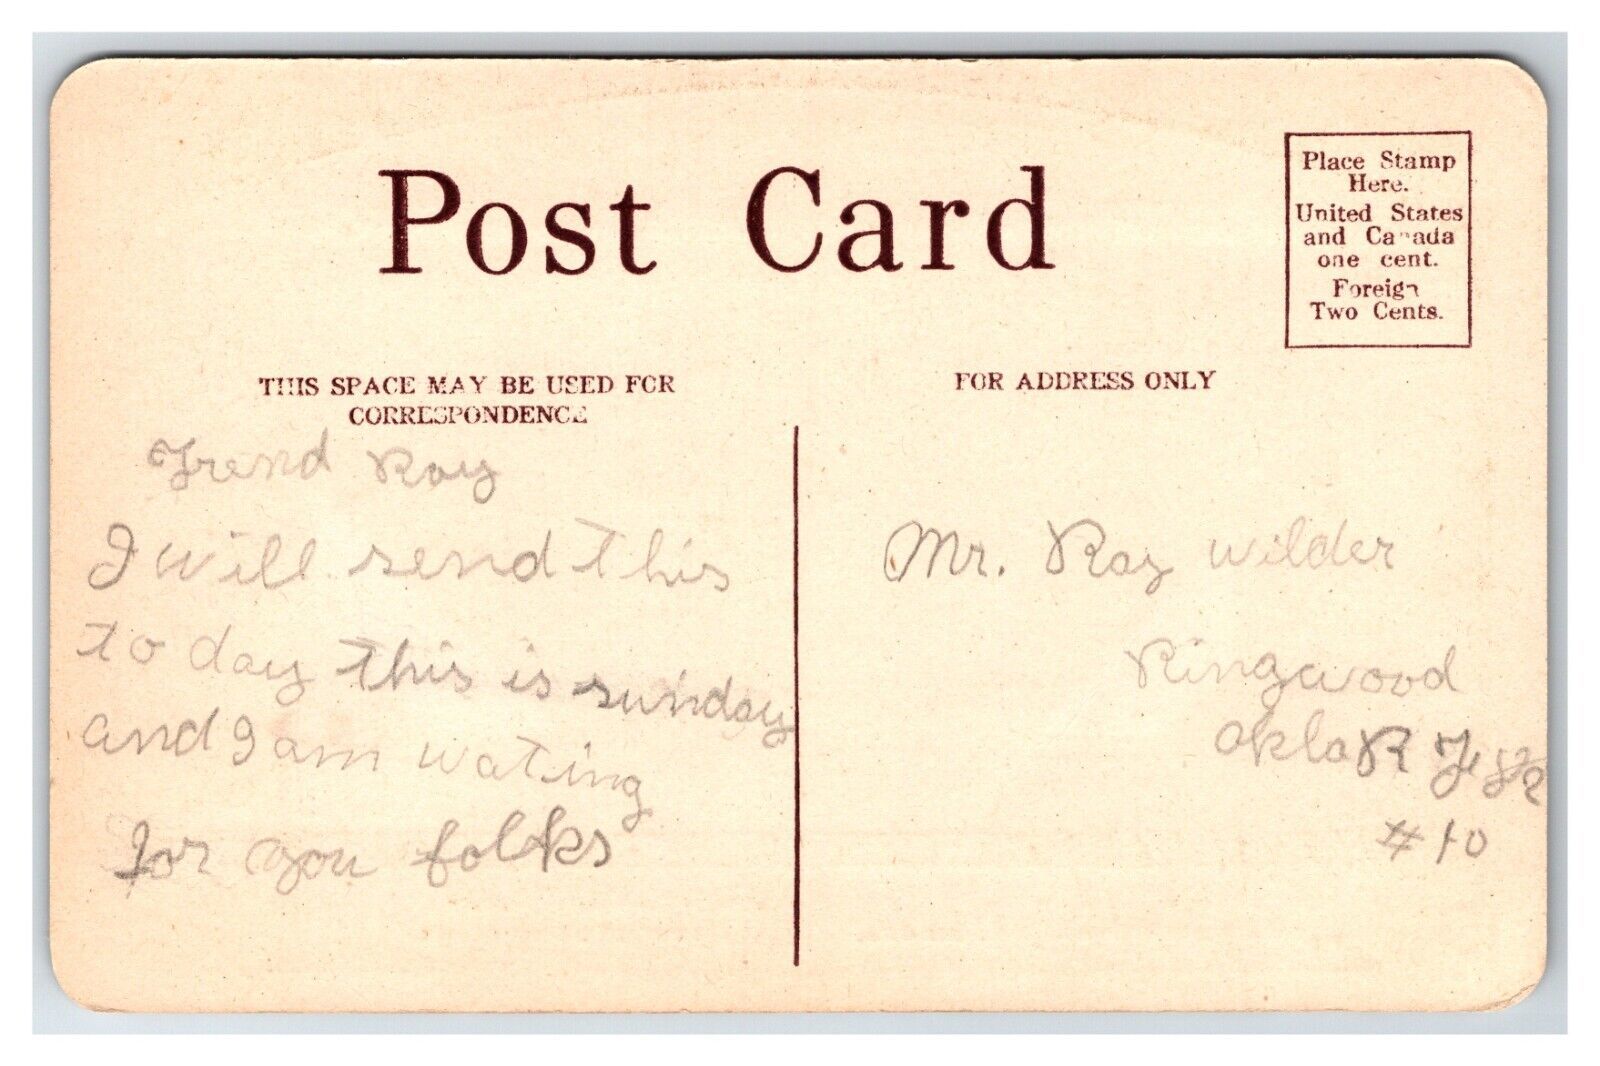 Post Card
Place Stamp
Here.
United States
and Canada
one cent.
Foreign
Two Cents.
THIS SPACE MAY BE USED FOR
CORRESPONDENCE
FOR ADDRESS ONLY
Frend Ray
I will send this
to day this is sunday
and I am wating
for you folks
Mr. Ray wilder
Ringwood
Okla R F
#10